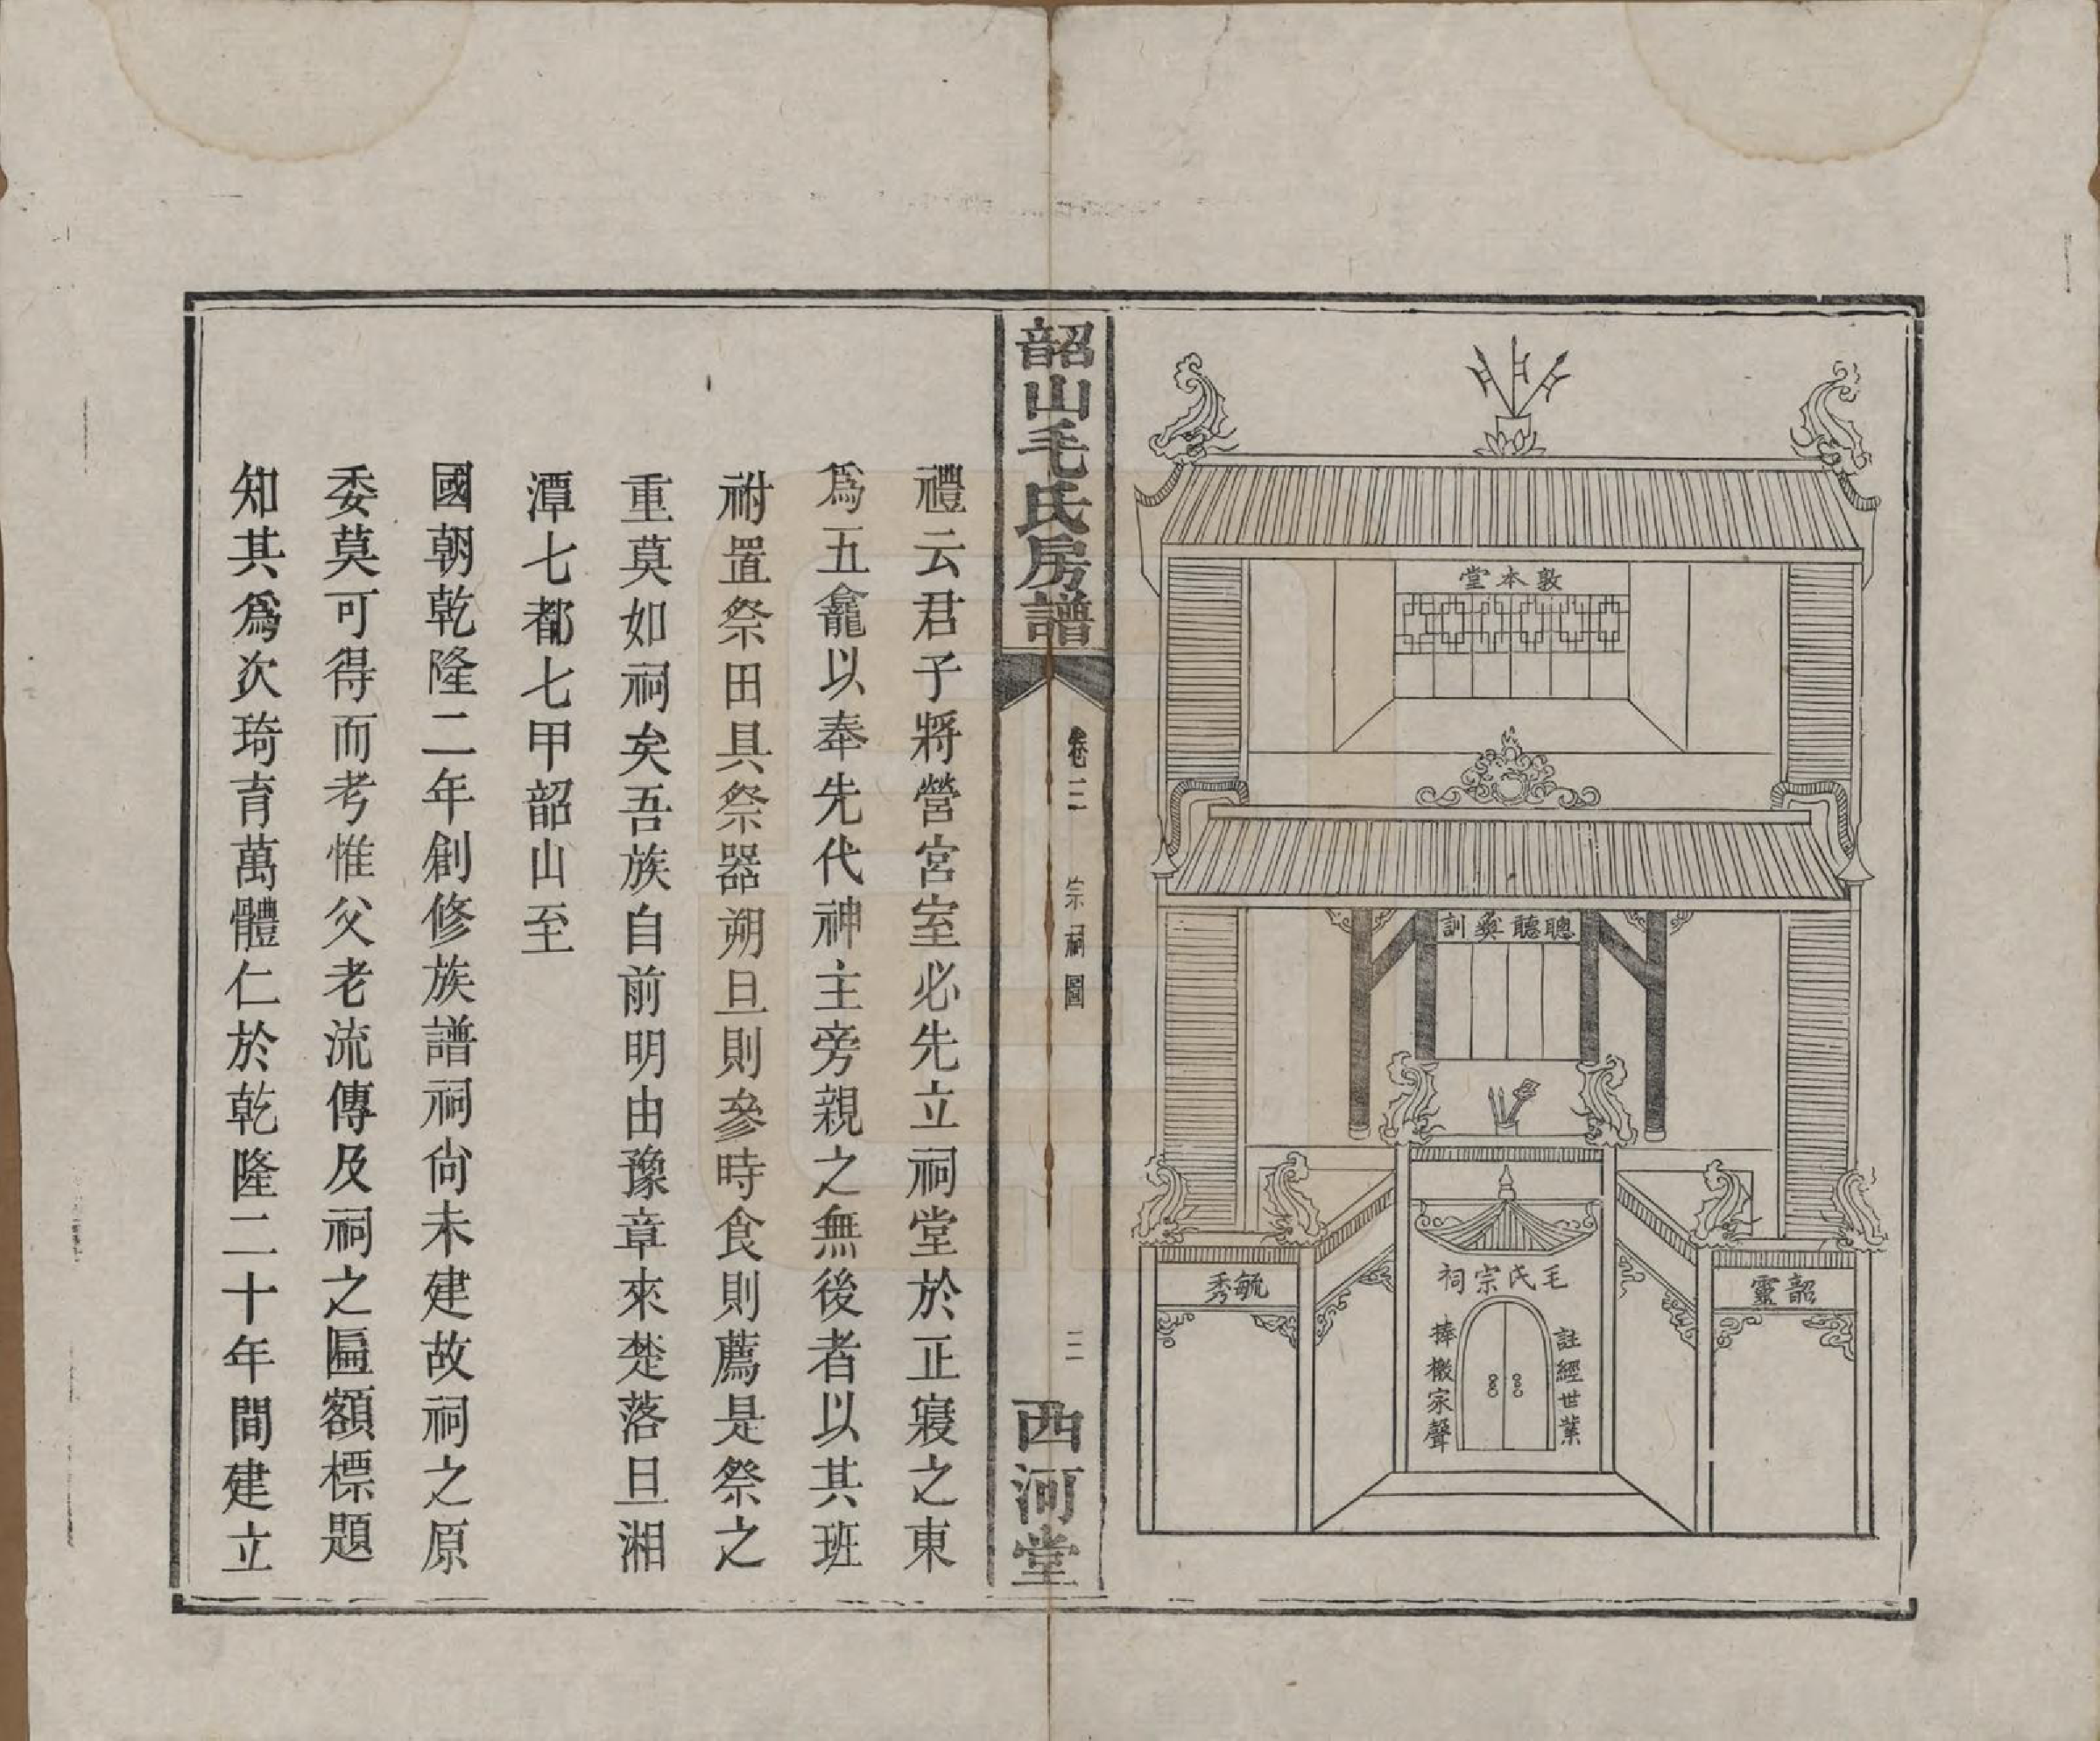 敦本堂
聰聽彝訓
韶靈
毓秀
毛氏宗祠
註經世業
捧檄家聲
韶山毛氏房譜
卷二
宗祠圖
二
西河堂
禮云君子將營宮室必先立祠堂於正寢之東
爲五龕以奉先代神主旁親之無後者以其班
祔置祭田具祭器朔旦則參時食則薦是祭之
重莫如祠矣吾族自前明由豫章來楚落旦湘
潭七都七甲韶山至
國朝乾隆二年創修族譜祠尙未建故祠之原
委莫可得而考惟父老流傳及祠之匾額標題
知其爲次琦育萬體仁於乾隆二十年間建立